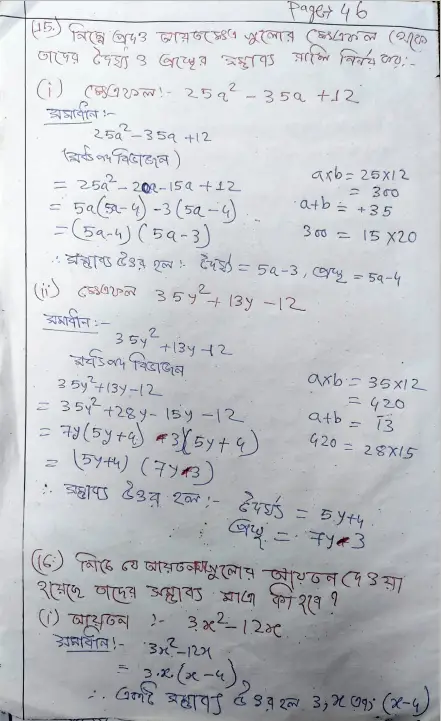 Page 46
(15.) নিম্নে প্রদত্ত আয়তক্ষেত্র গুলোর ক্ষেত্রফল থেকে
তাদের দৈর্ঘ্য ও প্রস্থের সম্ভাব্য রাশি নির্ণয় কর:-
(i) ক্ষেত্রফল:- 25a² - 35a + 12
সমাধান:-
25a² - 35a + 12
(মধ্যপদ বিভাজন)
= 25a² - 20a - 15a + 12
= 5a(5a-4) - 3(5a-4)
= (5a-4) (5a-3)
a×b = 25×12
= 300
a+b = +35
300 = 15×20
∴ সম্ভাব্য উত্তর হল:- দৈর্ঘ্য = 5a-3, প্রস্থ = 5a-4
(ii) ক্ষেত্রফল 35y² + 13y - 12
সমাধান:-
35y² + 13y - 12
মধ্যপদ বিভাজন
35y² + 13y - 12
= 35y² + 28y - 15y - 12
= 7y(5y+4) - 3(5y+4)
= (5y+4) (7y-3)
a×b = 35×12
= 420
a+b = 13
420 = 28×15
∴ সম্ভাব্য উত্তর হল:-
দৈর্ঘ্য = 5y+4
প্রস্থ = 7y-3
(16) নিচে যে আয়তঘনগুলোর আয়তন দেওয়া
হয়েছে তাদের সম্ভাব্য মাত্রা কী হবে ?
(i) আয়তন :- 3x² - 12x
সমাধান:-
3x² - 12x
= 3x(x-4)
∴ একটি সম্ভাব্য উত্তর হল 3, x এবং (x-4)